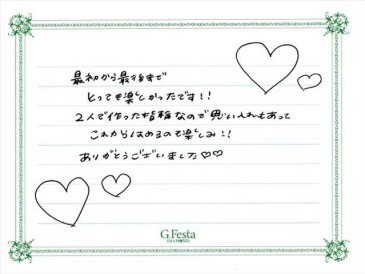 最初から最後まで
とっても楽しかったです!!
2人で作った指輪なので思い入れもあって
これからはめるので楽しみ!!
ありがとうございました♡♡
G.Festa
DIAMOND